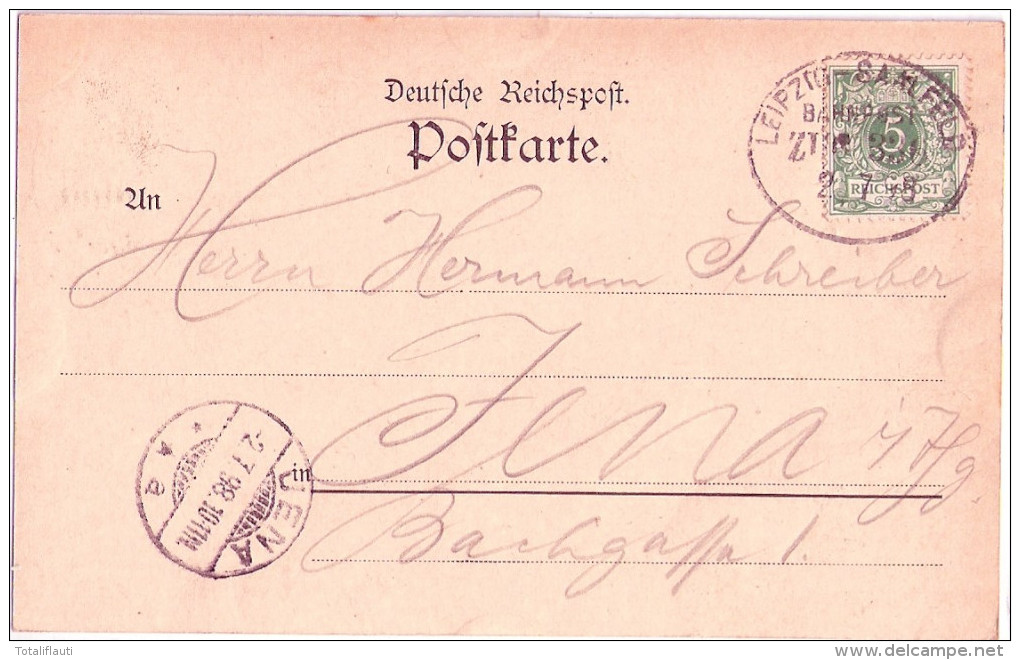 Deutsche Reichspost.
Postkarte.
An
Herrn Hermann Schreiber
in Jena i/Thg.
Bachgasse 1.
LEIPZIG SAALFELD
BAHNPOST
2 7 98
5
REICHSPOST
JENA
2.7.98.10-11N.
* a
Totaliflauti
delcampe.net